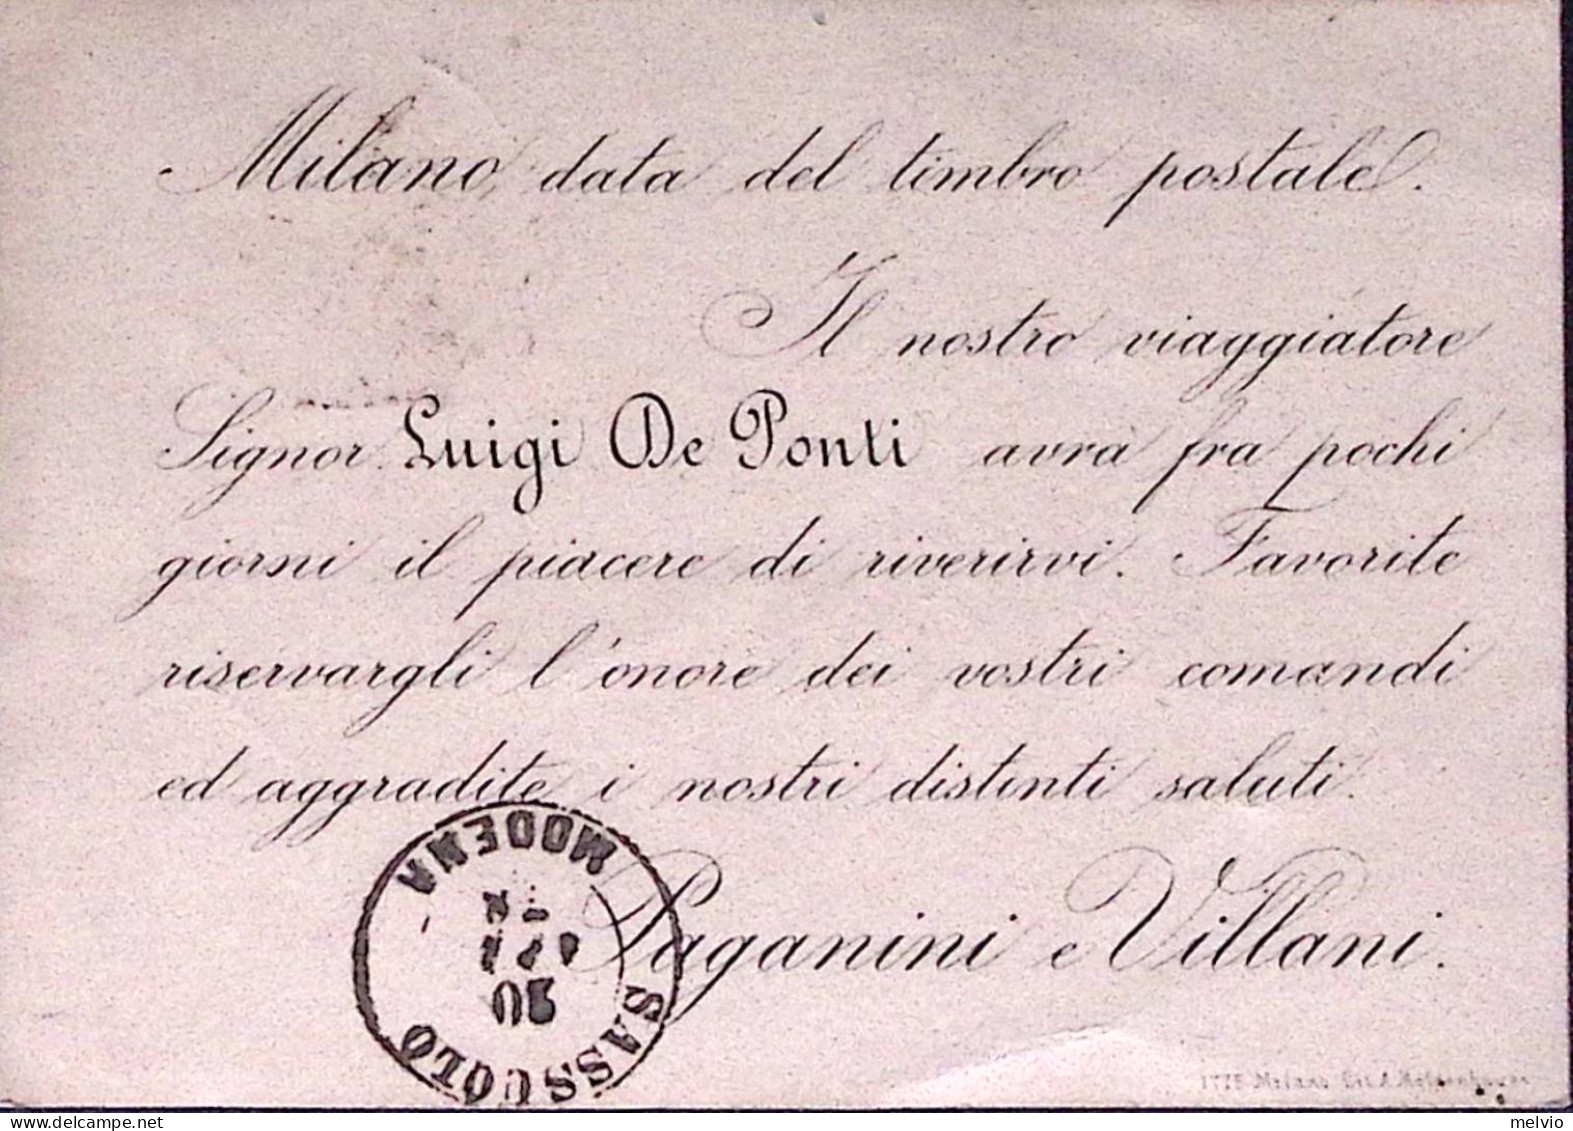 Milano, data del timbro postale.
Il nostro viaggiatore
Signor Luigi De Ponti avrà fra pochi
giorni il piacere di riverirvi. Favorite
riservargli l'onore dei vostri comandi
ed aggradite i nostri distinti saluti.
Paganini e Villani.
SASSUOLO
20
MODENA
Milano Lit.
melvio